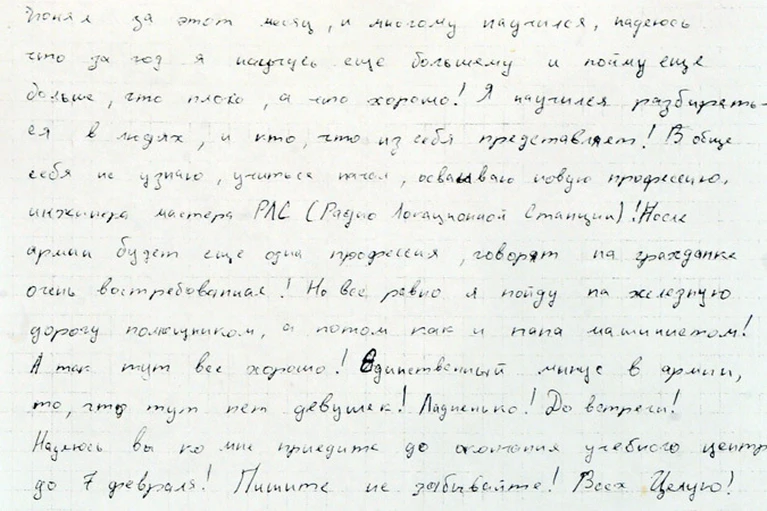 понял за этот месяц, и многому научился, надеюсь
что за год я научусь еще большему и пойму еще
больше, что плохо, а что хорошо! Я научился разбирать-
ся в людях, и кто, что из себя представляет! Вобще
себя не узнаю, учиться начал, осваиваю новую профессию,
инженера мастера РЛС (Радио Локационной Станции)! После
армии будет еще одна профессия, говорят на гражданке
очень востребованная! Но все равно я пойду на железную
дорогу помощником, а потом как и папа машинистом!
А так тут все хорошо! Единственный минус в армии,
то, что тут нет девушек! Ладненько! До встречи!
Надеюсь вы ко мне приедите до окончания учебного центр
до 7 февраля! Пишите не забывайте! Всех Целую!